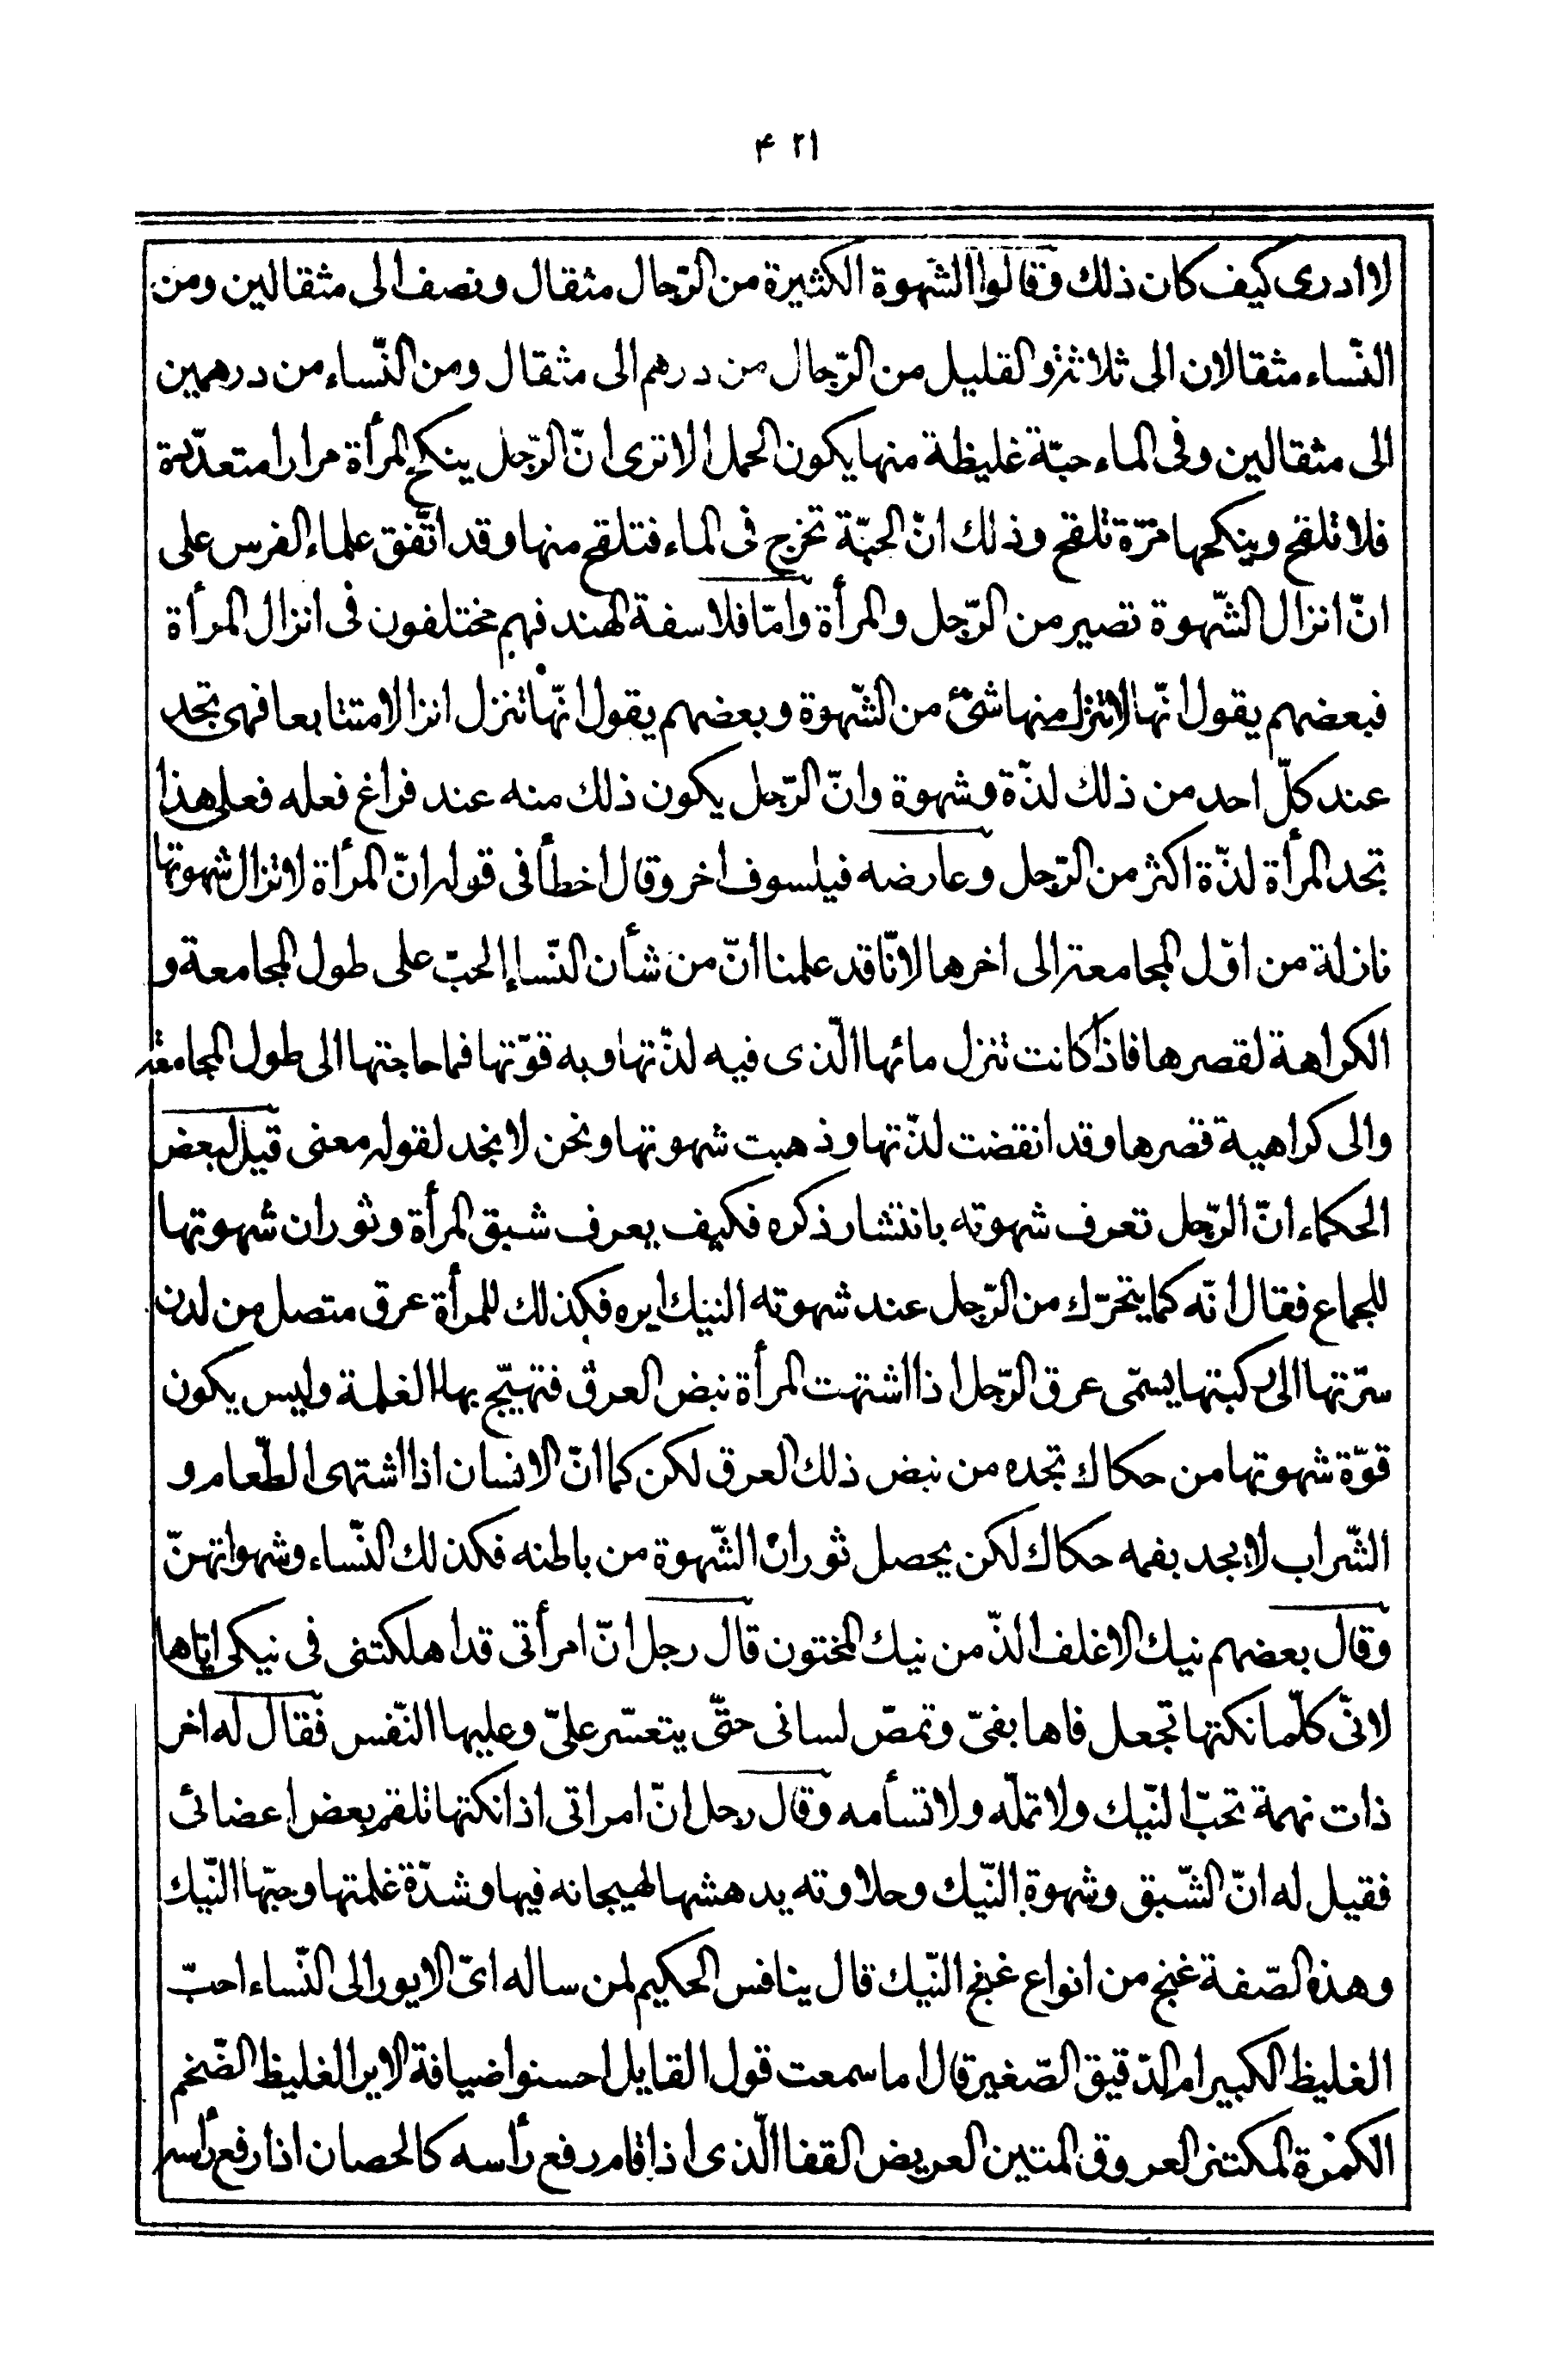 ۴۲۱
لا ادرى كيف كان ذلك وقالوا الشّهوة الكثيرة من الرّجال مثقال ونصف الى مثقالين ومن
النّساء مثقالان الى ثلاثة والقليل من الرّجال من درهم الى مثقال ومن النّساء من درهمين
الى مثقالين وفى الماء حبّة غليظة منها يكون الحمل الا ترى انّ الرّجل ينكح المرأة مرارا متعدّدة
فلا تلقح وينكحها مرّة تلقح وذلك انّ الحبّة تخرج فى الماء فتلقح منها وقد اتّفق علماء الفرس على
انّ انزال الشّهوة تصير من الرّجل والمرأة وامّا فلاسفة الهند فهم مختلفون فى انزال المرأة
فبعضهم يقول انّها لا تنزل منها شىء من الشّهوة وبعضهم يقول انّها تنزل انزالا متتابعا فهى تجد
عند كلّ احد من ذلك لذّة وشهوة وانّ الرّجل يكون ذلك منه عند فراغ فعله فعلى هذا
تجد المرأة لذّة اكثر من الرّجل وعارضه فيلسوف اخر وقال اخطأ فى قوله انّ المرأة لا تزال شهوتها
نازلة من اوّل المجامعة الى اخرها لانّا قد علمنا انّ من شأن النّساء الحبّ على طول المجامعة و
الكراهة لقصرها فاذا كانت تنزل مائها الّذى فيه لذّتها وبه قوّتها فما حاجتها الى طول المجامعة
والى كراهية قصرها وقد انقضت لذّتها وذهبت شهوتها ونحن لا نجد لقوله معنى قيل لبعض
الحكماء انّ الرّجل تعرف شهوته بانتشار ذكره فكيف يعرف شبق المرأة وثوران شهوتها
للجماع فقال انّه كما يتحرّك من الرّجل عند شهوته النيك ايره فكذلك للمرأة عرق متصل من لدن
سرّتها الى ركبتها يسمّى عرق الرّجل اذا اشتهت المرأة نبض العرق فتهيّج بها الغلمة وليس يكون
قوّة شهوتها من حكاك تجده من نبض ذلك العرق لكن كما انّ الانسان اذا اشتهى الطّعام و
الشّراب لا يجد بفمه حكاك لكن يحصل ثوران الشّهوة من باطنه فكذلك النّساء وشهواتهنّ
وقال بعضهم نيك الاغلف الذّ من نيك المختون قال رجل انّ امرأتى قد اهلكتنى فى نيكى ايّاها
لانّى كلّما نكتها تجعل فاها بفىّ وتمصّ لسانى حتّى يتعسّر علىّ وعليها النّفس فقال له اخر
ذات نهمة تحبّ النّيك ولا تملّه ولا تسأمه وقال رجل انّ امراتى اذا نكتها تلقم بعض اعضائى
فقيل له انّ الشّبق وشهوة النّيك وحلاوته يدهشها لهيجانه فيها وشدّة غلمتها وحبّها النّيك
وهذه الصّفة غنج من انواع غنج النّيك قال ينافس الحكيم لمن ساله اىّ الايور الى النّساء احبّ
الغليظ الكبير ام الدّقيق الصّغير قال اما سمعت قول القايل احسنوا ضيافة الاير الغليظ الضّخم
الكمرة المكتنز العروق المتين العريض القفا الّذى اذا قام رفع رأسه كالحصان اذا رفع رأسه